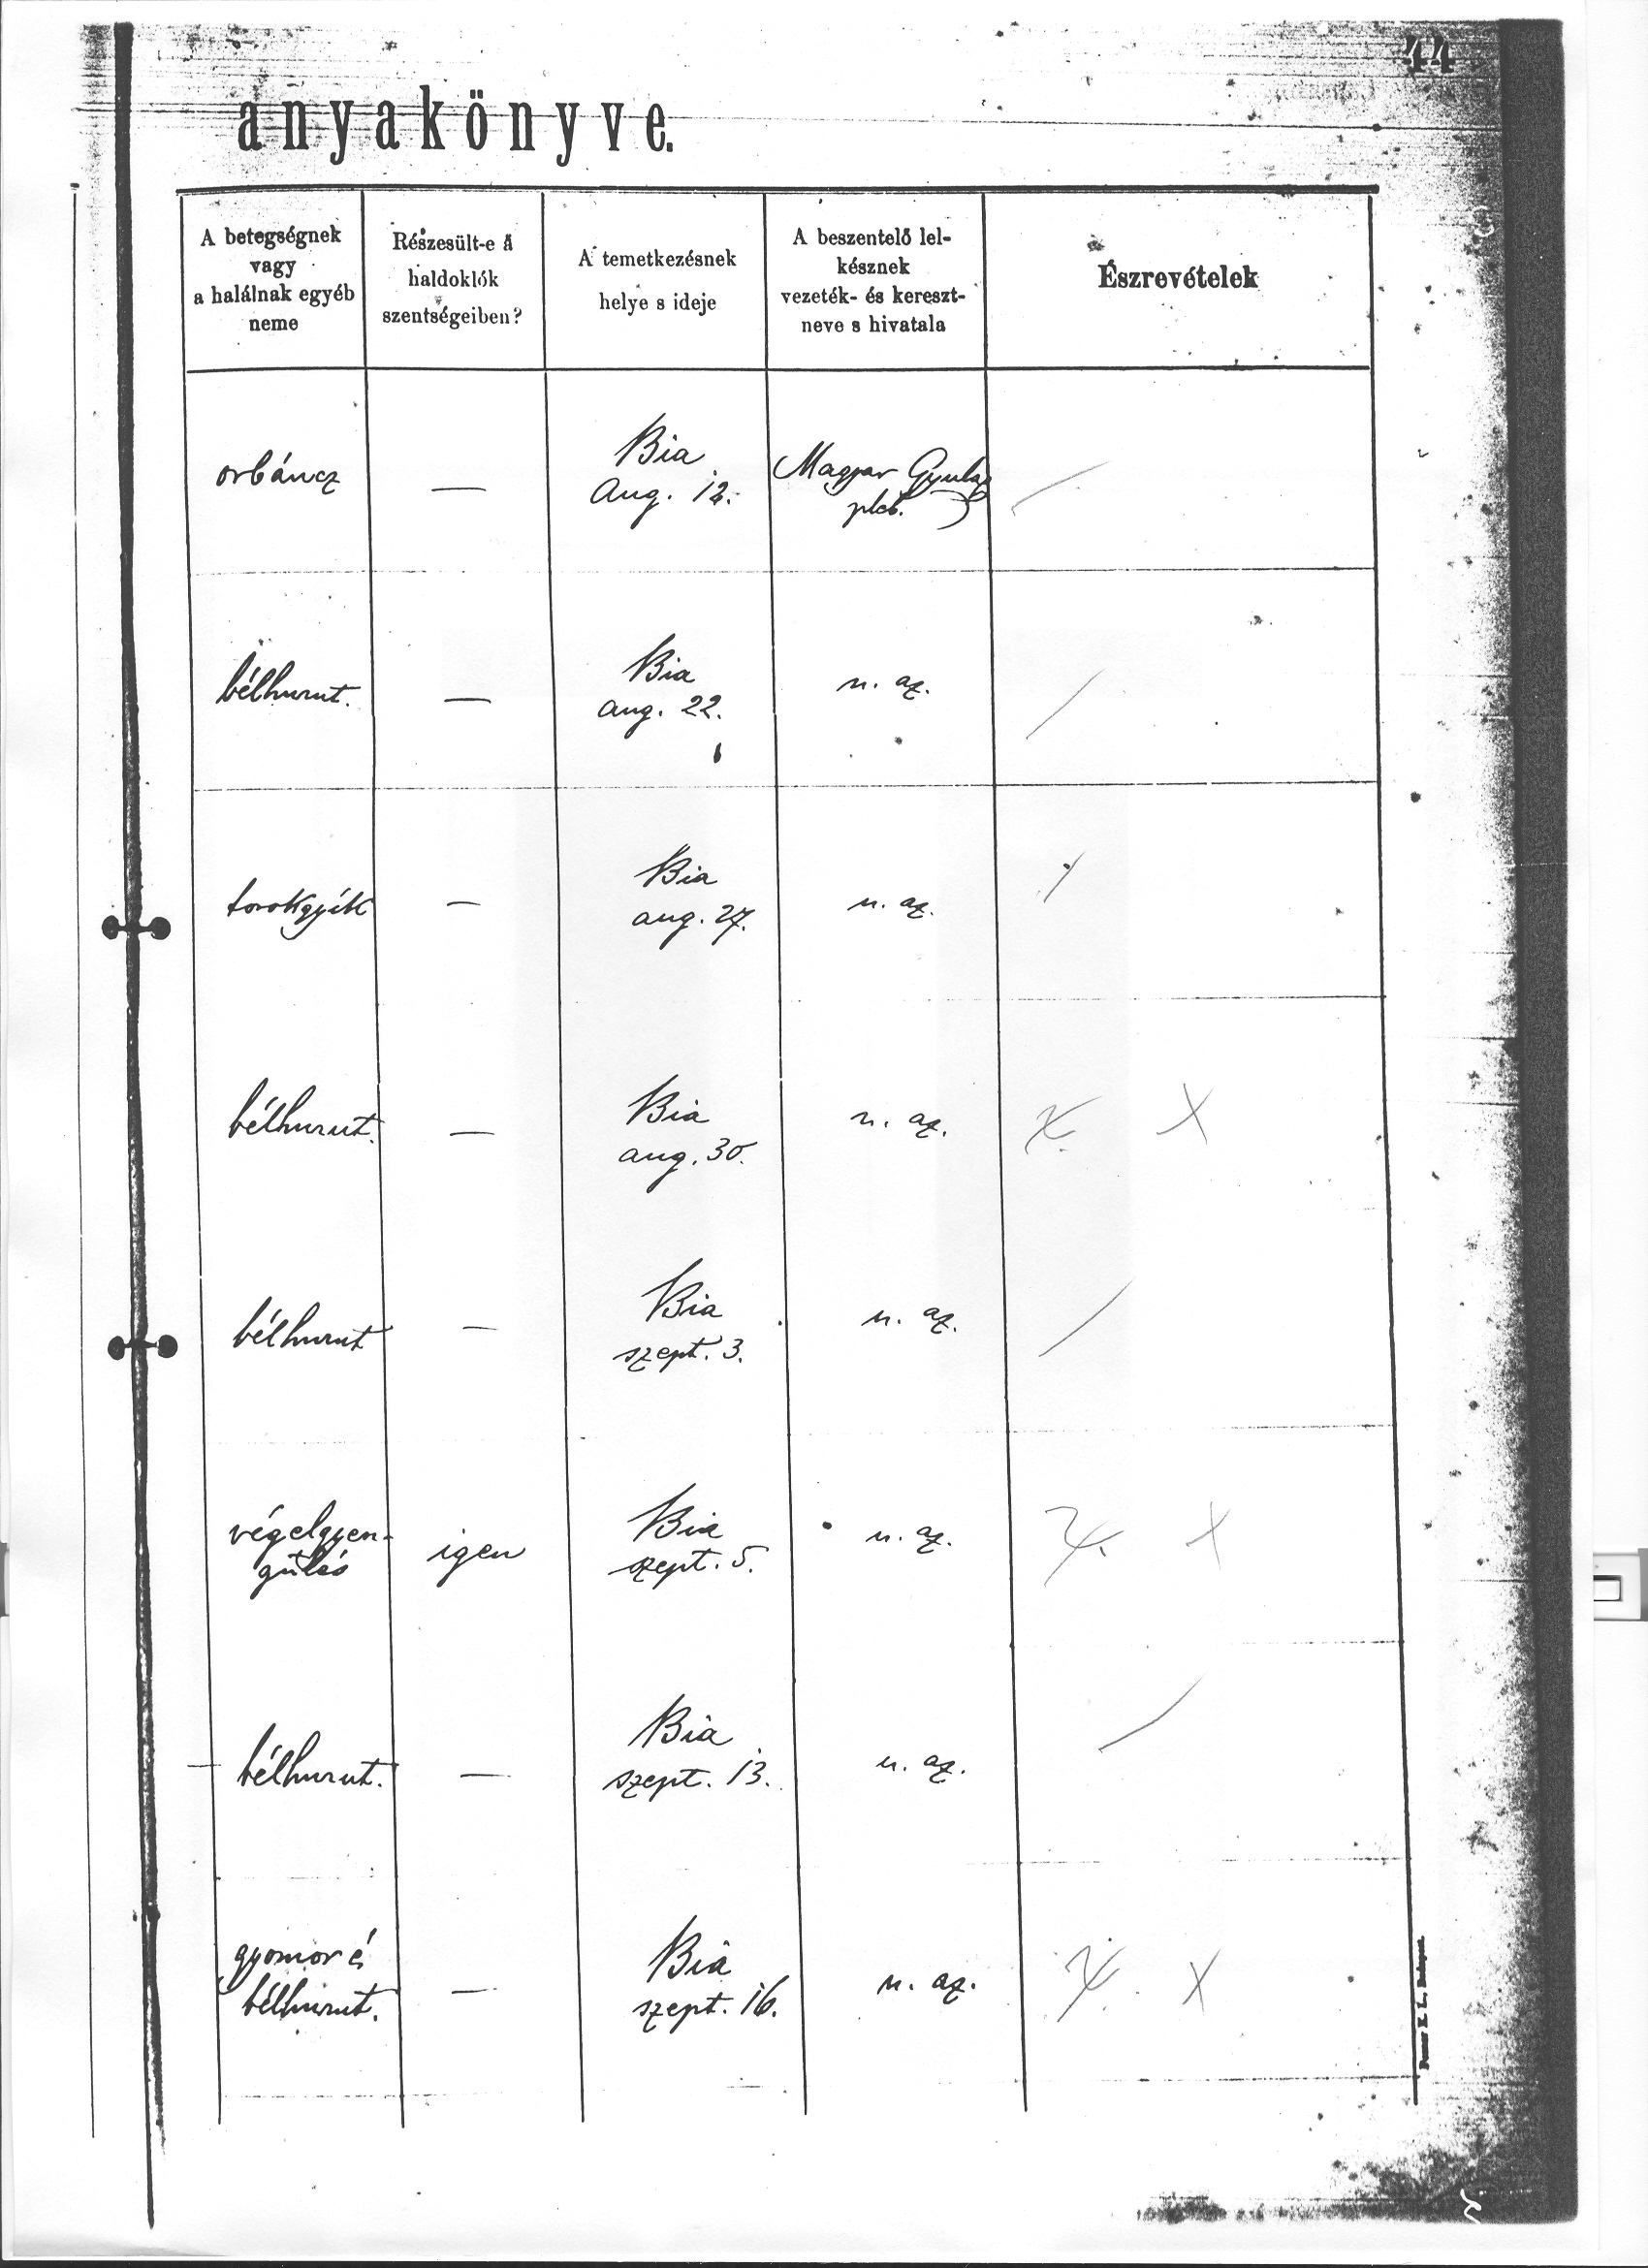 44
anyakönyve.
A betegségnek
vagy
a halálnak egyéb
neme
Részesült-e a
haldoklók
szentségeiben?
A temetkezésnek
helye s ideje
A beszentelő lel-
késznek
vezeték- és kereszt-
neve s hivatala
Észrevételek
orbáncz
—
Bia
Aug. 12.
Magyar Gyula
pleb.
bélhurut.
—
Bia
aug. 22.
u. az.
torokgyík
—
Bia
aug. 27.
u. az.
bélhurut.
—
Bia
aug. 30.
u. az.
bélhurut
—
Bia
szept. 3.
u. az.
végelgyen-
gülés
igen
Bia
szept. 5.
u. az.
bélhurut.
—
Bia
szept. 13.
u. az.
gyomor és
bélhurut.
—
Bia
szept. 16.
u. az.